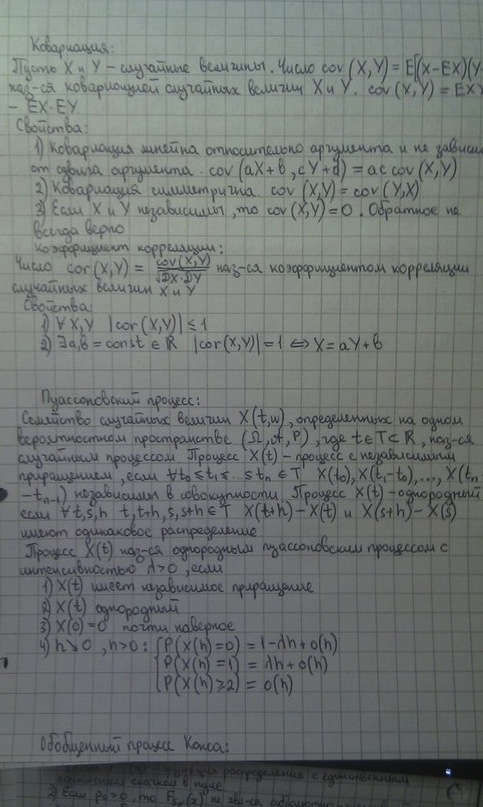 Ковариация:
Пусть X и Y – случайные величины. Число cov(X,Y) = E[(X-EX)(Y-
наз-ся ковариацией случайных величин X и Y. cov(X,Y) = EX
- EX·EY
Свойства:
1) Ковариация линейна относительно аргумента и не зависи
от сдвига аргумента. cov(aX+b, cY+d) = ac cov(X,Y)
2) Ковариация симметрична. cov(X,Y) = cov(Y,X)
3) Если X и Y независимы, то cov(X,Y)=0. Обратное не
всегда верно
Коэффициент корреляции:
Число cor(X,Y) = cov(X,Y)/√DX·DY наз-ся коэффициентом корреляции
случайных величин X и Y
Свойства:
1) ∀X,Y |cor(X,Y)| ≤ 1
2) ∃a,b = const ∈ R |cor(X,Y)| = 1 ⇔ X = aY+b
Пуассоновский процесс:
Семейство случайных величин X(t,w), определенных на одном
вероятностном пространстве (Ω, A, P), где t∈T⊂R, наз-ся
случайным процессом. Процесс X(t) - процесс с независимым
приращением, если ∀t₀≤t₁≤...≤tₙ∈T X(t₀), X(t₁-t₀),..., X(tₙ-
-tₙ₋₁) независимы в совокупности. Процесс X(t) - однородный
если ∀t,s,h t,t+h,s,s+h∈T X(t+h)-X(t) и X(s+h)-X(s)
имеют одинаковое распределение
Процесс X(t) наз-ся однородным пуассоновским процессом с
интенсивностью λ>0, если
1) X(t) имеет независимое приращение
2) X(t) однородный
3) X(0)=0 почти наверное
4) h↘0, h>0: { P(X(h)=0) = 1-λh+o(h)
P(X(h)=1) = λh+o(h)
P(X(h)≥2) = o(h)
Обобщенный процесс Кокса:
распределения с единственным
единичном скачком в нуле
2) Если p₀>0, то